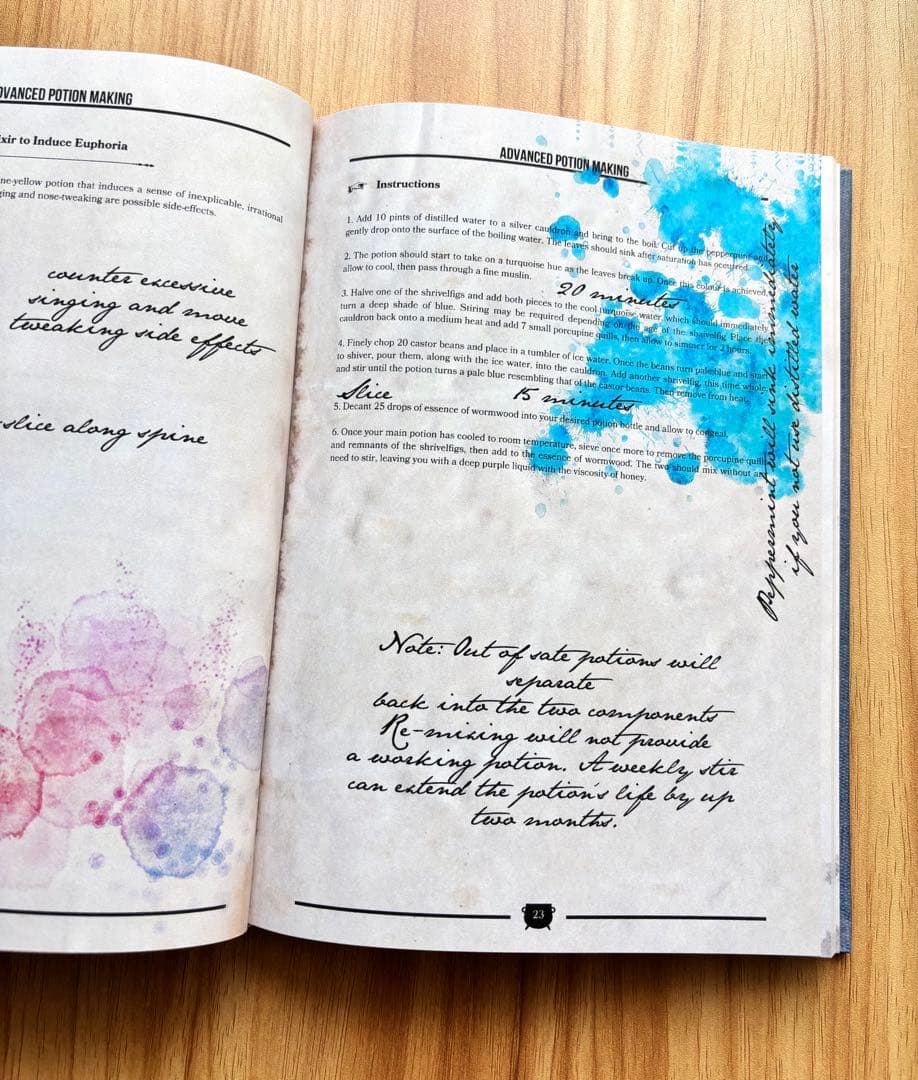 DVANCED POTION MAKING
ixir to Induce Euphoria
ne-yellow potion that induces a sense of inexplicable, irrational
ging and nose-tweaking are possible side-effects.
counter excessive
singing and move
tweaking side effects
slice along spine
ADVANCED POTION MAKING
Instructions
1. Add 10 pints of distilled water to a silver cauldron and bring to the boil. Cut up the peppermint and
gently drop onto the surface of the boiling water. The leaves should sink after saturation has occurred.
2. The potion should start to take on a turquoise hue as the leaves break up. Once this colour is achieved,
allow to cool, then pass through a fine muslin.
20 minutes
3. Halve one of the shrivelfigs and add both pieces to the cool turquoise water, which should immediately
turn a deep shade of blue. Stiring may be required depending on the age of the shrivelfig. Place the
cauldron back onto a medium heat and add 7 small porcupine quills, then allow to simmer for 2 hours.
4. Finely chop 20 castor beans and place in a tumbler of ice water. Once the beans turn pale blue and start
to shiver, pour them, along with the ice water, into the cauldron. Add another shrivelfig, this time whole,
and stir until the potion turns a pale blue resembling that of the castor beans. Then remove from heat.
Slice 15 minutes
5. Decant 25 drops of essence of wormwood into your desired potion bottle and allow to congeal.
6. Once your main potion has cooled to room temperature, sieve once more to remove the porcupine quills
and remnants of the shrivelfigs, then add to the essence of wormwood. The two should mix without any
need to stir, leaving you with a deep purple liquid with the viscosity of honey.
Peppermint will sink immediately -
if you not use distilled water
Note: Out of sate potions will
separate
back into the two components
Re-mixing will not provide
a working potion. A weekly stir
can extend the potion's life by up
two months.
23